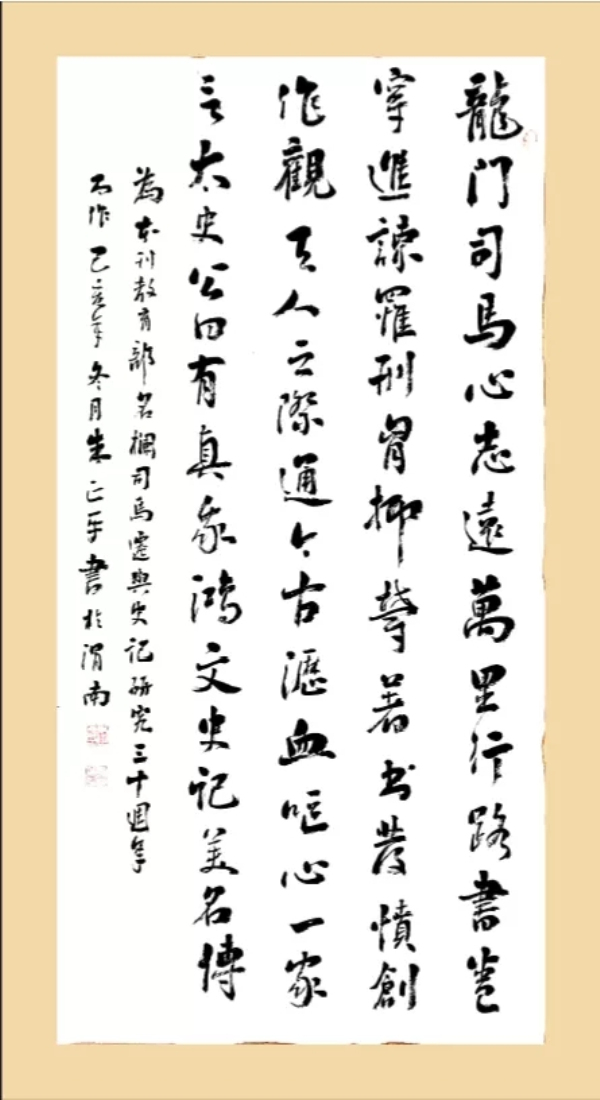 龍門司馬心志遠萬里行路書卷
穿進諫罹刑胷抑鬱著书發憤創
作觀天人之際通今古瀝血呕心一家
言太史公曰有真我鴻文史记美名傳
為本刊教育部名欄司馬遷與史记研究三十週年
而作己亥年冬月朱正平書於渭南